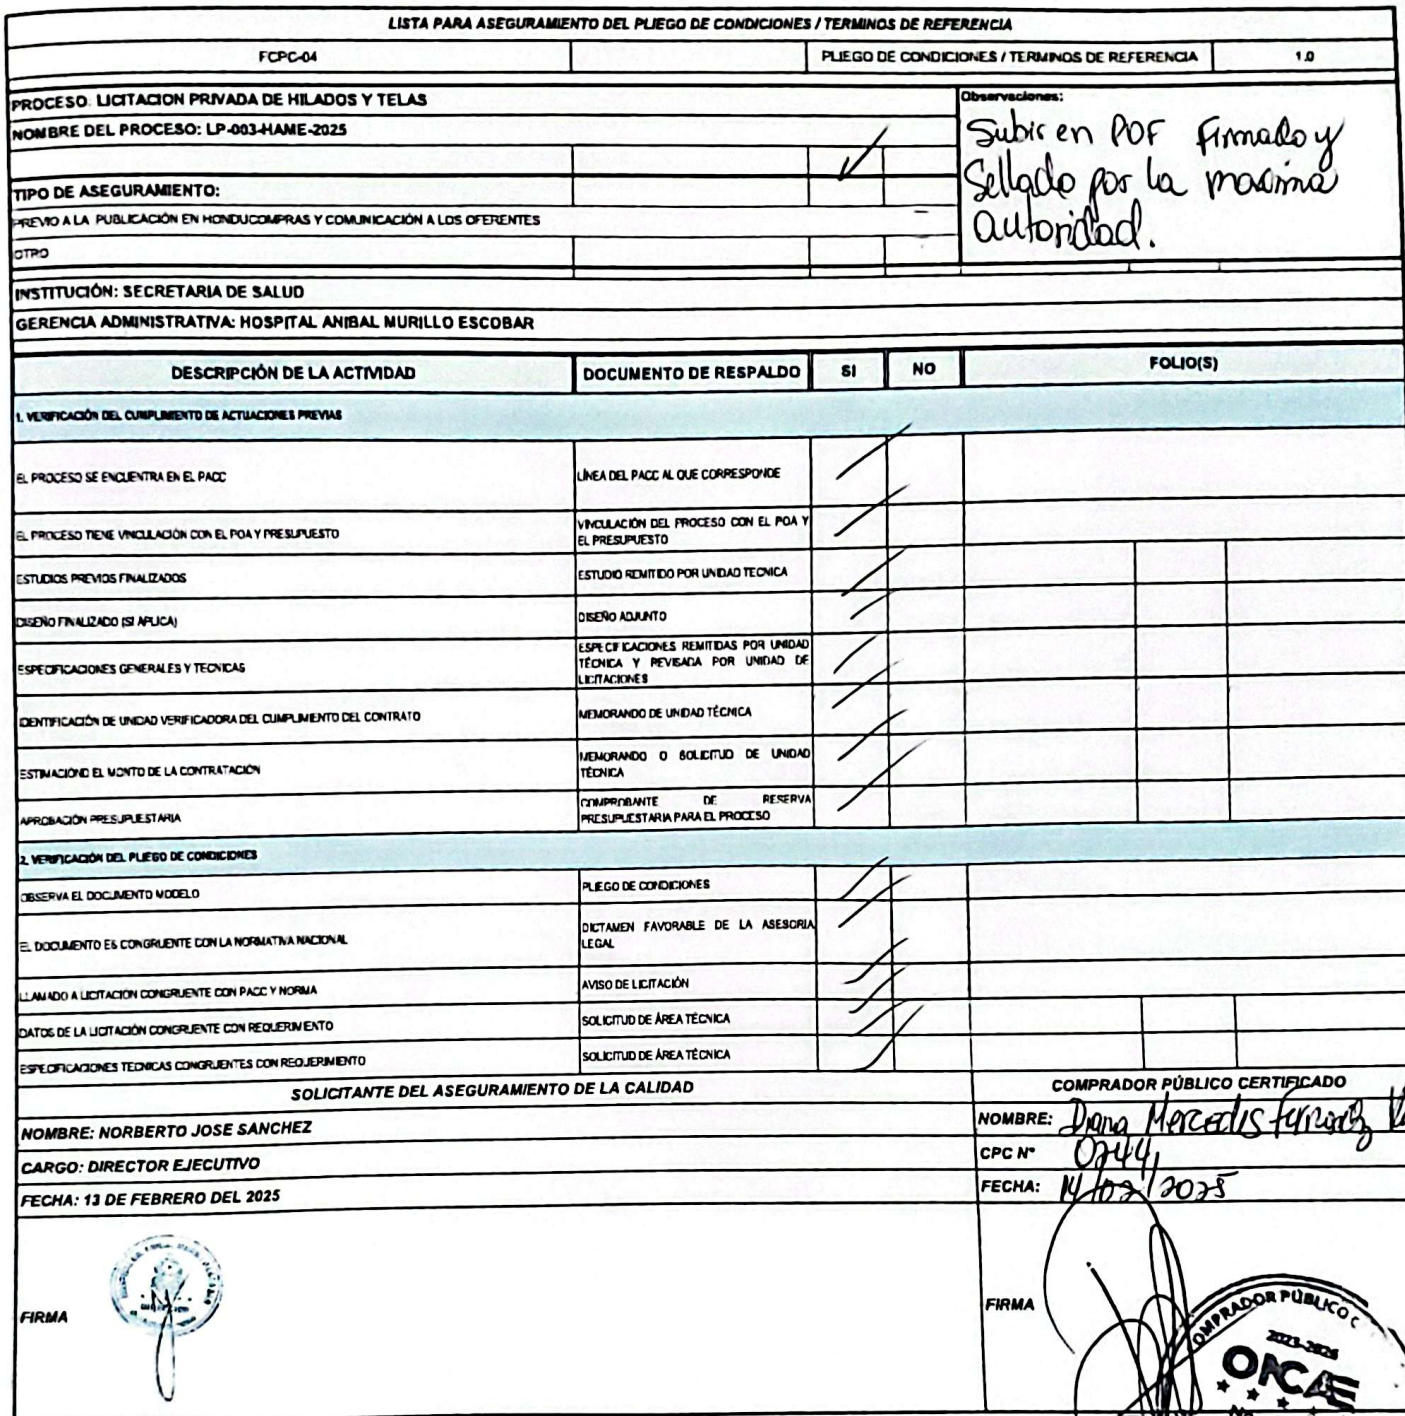 LISTA PARA ASEGURAMIENTO DEL PLIEGO DE CONDICIONES / TERMINOS DE REFERENCIA
FCPC-04 PLIEGO DE CONDICIONES / TERMINOS DE REFERENCIA 1.0
PROCESO: LICITACION PRIVADA DE HILADOS Y TELAS
NOMBRE DEL PROCESO: LP-003-HAME-2025
TIPO DE ASEGURAMIENTO:
PREVIO A LA PUBLICACIÓN EN HONDUCOMPRAS Y COMUNICACIÓN A LOS OFERENTES
OTRO
Observaciones:
Subir en PDF Firmado y
Sellado por la maxima
autoridad.
INSTITUCIÓN: SECRETARIA DE SALUD
GERENCIA ADMINISTRATIVA: HOSPITAL ANIBAL MURILLO ESCOBAR
DESCRIPCIÓN DE LA ACTIVIDAD DOCUMENTO DE RESPALDO SI NO FOLIO(S)
1. VERIFICACIÓN DEL CUMPLIMIENTO DE ACTUACIONES PREVIAS
EL PROCESO SE ENCUENTRA EN EL PACC LÍNEA DEL PACC AL QUE CORRESPONDE
EL PROCESO TIENE VINCULACIÓN CON EL POA Y PRESUPUESTO VINCULACIÓN DEL PROCESO CON EL POA Y
EL PRESUPUESTO
ESTUDIOS PREVIOS FINALIZADOS ESTUDIO REMITIDO POR UNIDAD TECNICA
DISEÑO FINALIZADO (SI APLICA) DISEÑO ADJUNTO
ESPECIFICACIONES GENERALES Y TECNICAS ESPECIFICACIONES REMITIDAS POR UNIDAD
TÉCNICA Y REVISADA POR UNIDAD DE
LICITACIONES
IDENTIFICACIÓN DE UNIDAD VERIFICADORA DEL CUMPLIMIENTO DEL CONTRATO MEMORANDO DE UNIDAD TÉCNICA
ESTIMACIOND EL MONTO DE LA CONTRATACIÓN MEMORANDO O SOLICITUD DE UNIDAD
TÉCNICA
APROBACIÓN PRESUPUESTARIA COMPROBANTE DE RESERVA
PRESUPUESTARIA PARA EL PROCESO
2. VERIFICACIÓN DEL PLIEGO DE CONDICIONES
OBSERVA EL DOCUMENTO MODELO PLIEGO DE CONDICIONES
EL DOCUMENTO ES CONGRUENTE CON LA NORMATIVA NACIONAL DICTAMEN FAVORABLE DE LA ASESORIA
LEGAL
LLAMADO A LICITACIÓN CONGRUENTE CON PACC Y NORMA AVISO DE LICITACIÓN
DATOS DE LA LICITACIÓN CONGRUENTE CON REQUERIMIENTO SOLICITUD DE ÁREA TÉCNICA
ESPECIFICACIONES TECNICAS CONGRUENTES CON REQUERIMIENTO SOLICITUD DE ÁREA TÉCNICA
SOLICITANTE DEL ASEGURAMIENTO DE LA CALIDAD
NOMBRE: NORBERTO JOSE SANCHEZ
CARGO: DIRECTOR EJECUTIVO
FECHA: 13 DE FEBRERO DEL 2025
FIRMA
COMPRADOR PÚBLICO CERTIFICADO
NOMBRE: Diana Mercedes
CPC N° 0744
FECHA: 14/02/2025
FIRMA
OMPRADOR PÚBLICO C
2023-2026
ONCAE